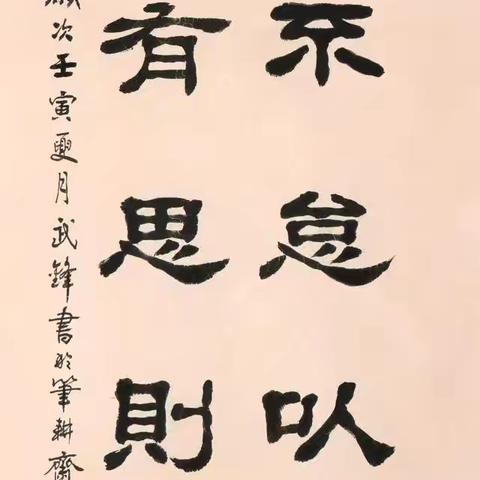 不怠以
有思則
歲次壬寅夏月武鋒書於筆耕齋